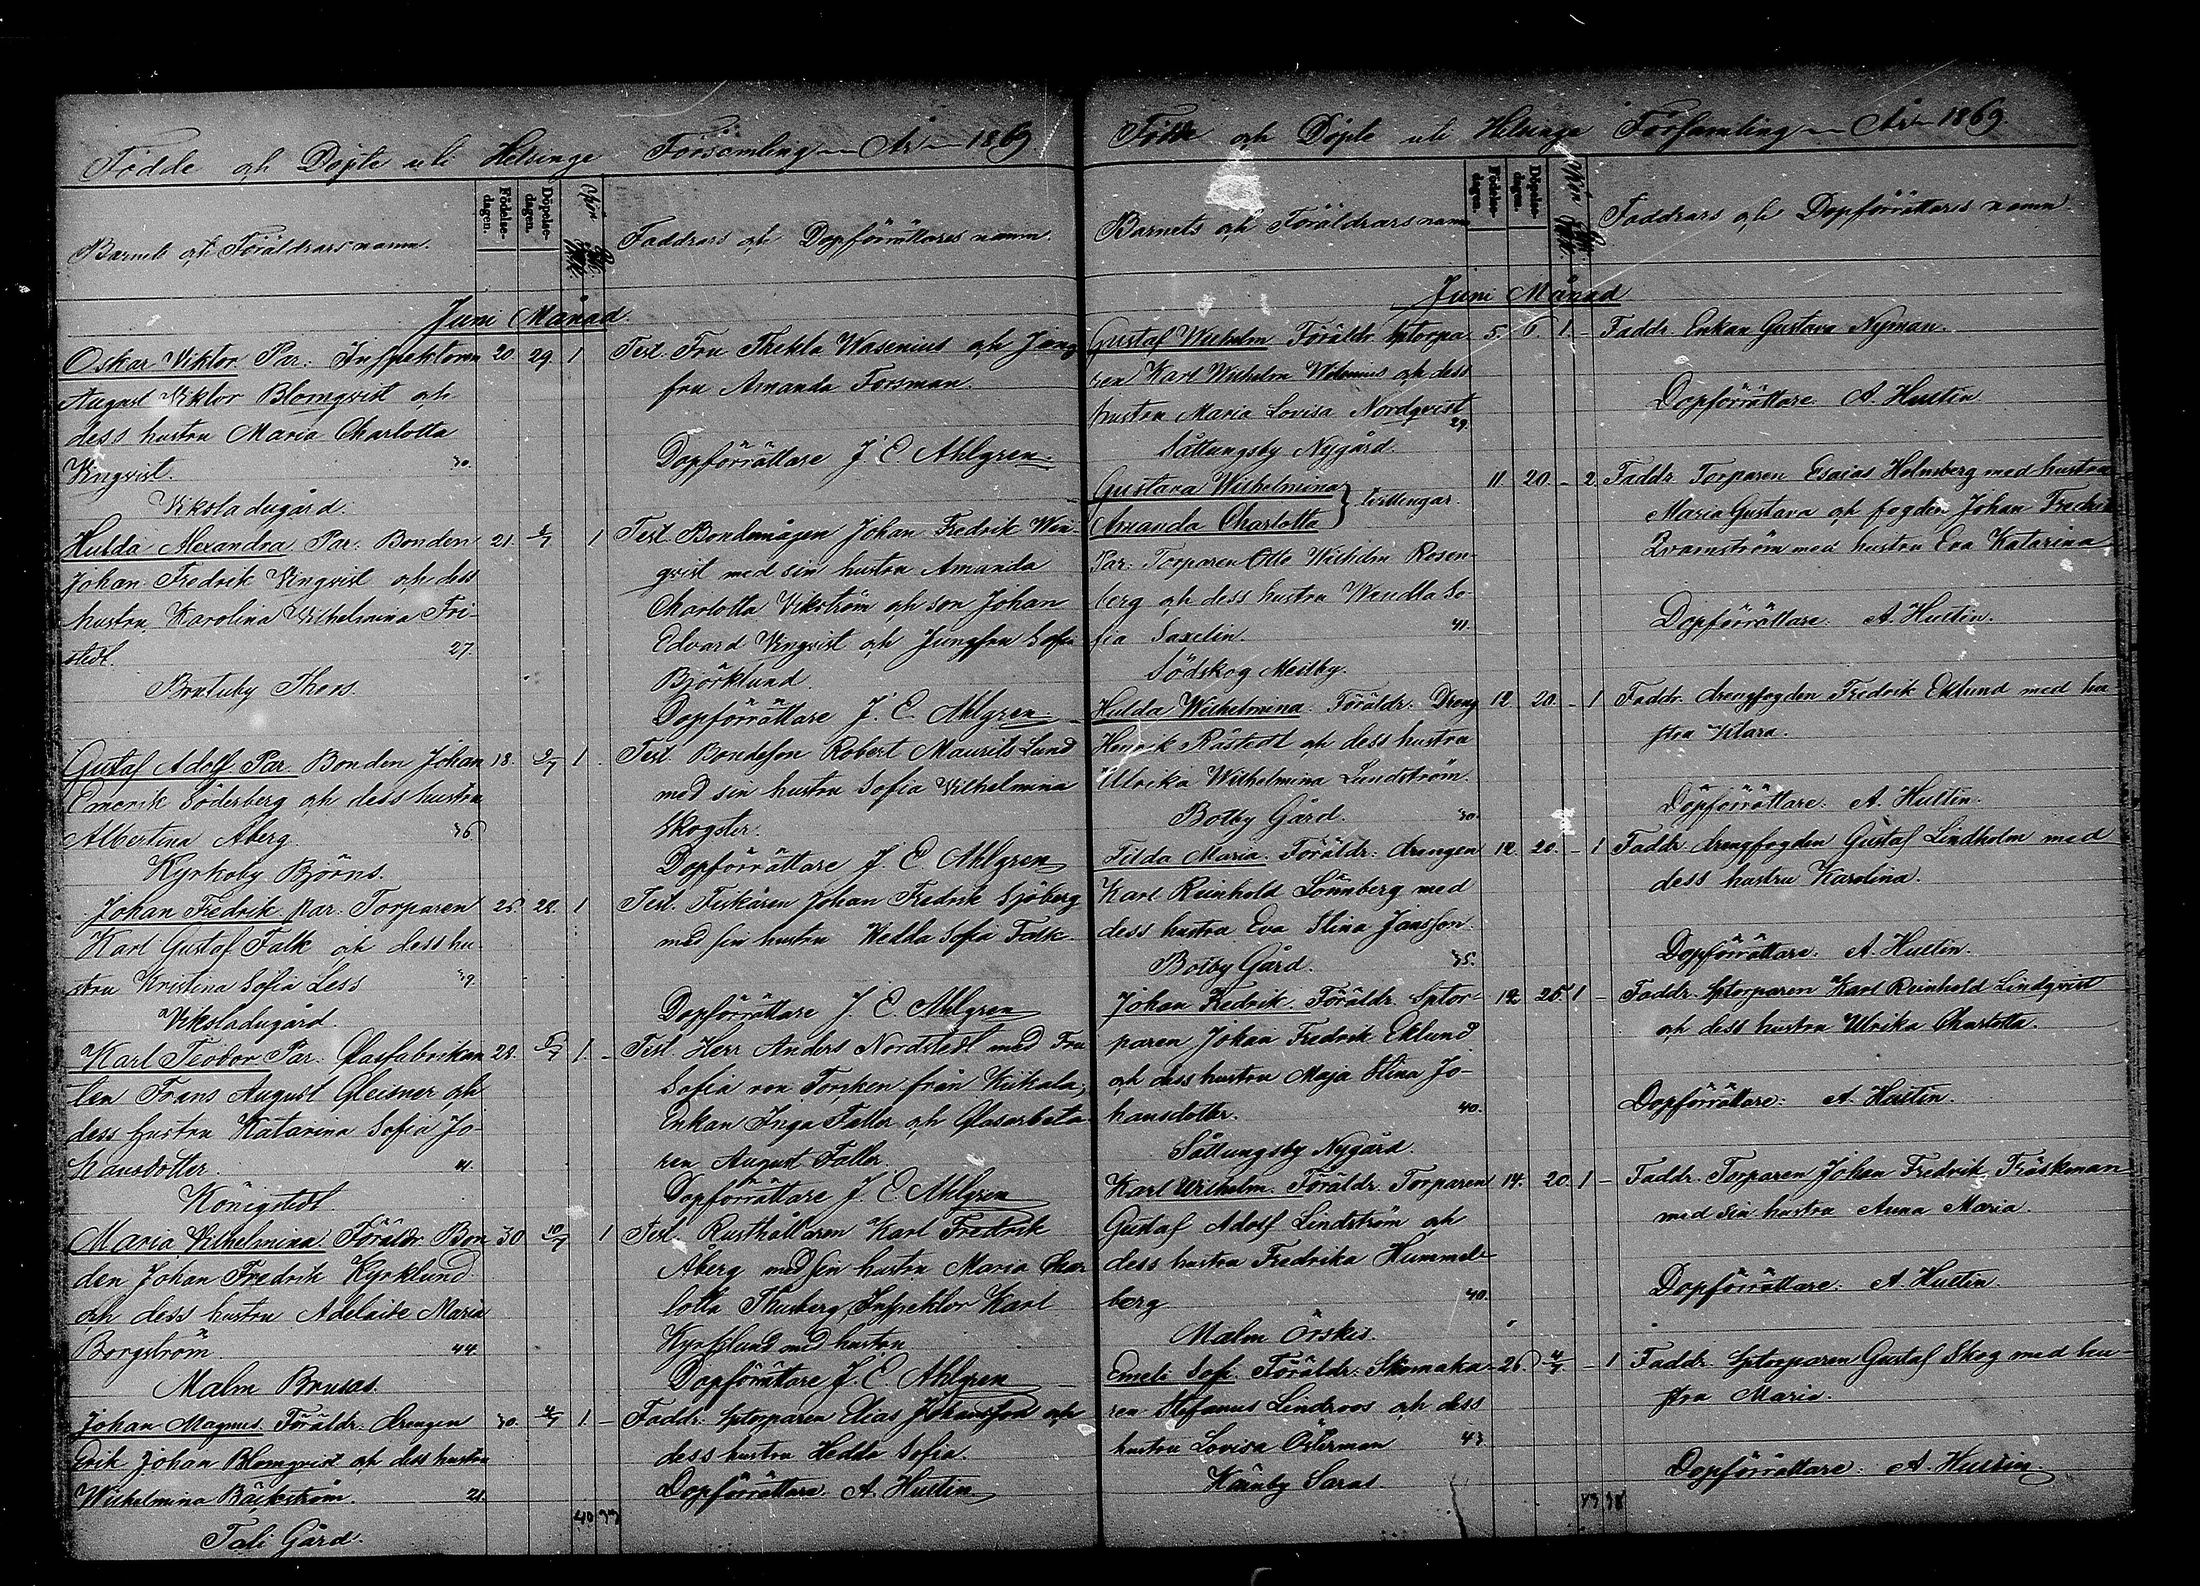 Födde och Döpte uti Helsinge Församling År 1869
Barnets och Föräldrars namn.
Födelse-
dagen.
Döpelse-
dagen.
Kön
Faddrars och Dopförrättares namn.
Juni Månad
Oskar Viktor Par: Inspektoren 20. 29. 1
August Viktor Blomqvist och
dess hustru Maria Charlotta
Vinqvist. 30.
Viksladugård.
Test. Fru Thekla Wasenius och Jung-
fru Amanda Forsman.
Dopförrättare J. E. Ahlgren
Hulda Alexandra Par: Bonden 21. 1
Johan Fredrik Vinqvist och dess
hustru Karolina Vilhelmina Fri-
stedt. 27.
Brutuby Thors.
Test. Bondemågen Johan Fredrik Win-
qvist med sin hustru Amanda
Charlotta Vikström och son Johan
Edvard Vinqvist och Jungfru Sofia
Björklund.
Dopförrättare J. E. Ahlgren
Gustaf Adolf Par. Bonden Johan 18. 2/7 1
Emerik Söderberg och dess hustru
Albertina Åberg. 36
Kyrkoby Björns.
Test. Bondeson Robert Maurits Lund
med sin hustru Sofia Vilhelmina
Skogster.
Dopförrättare J. E. Ahlgren
Johan Fredrik Par: Torparen 25. 28. 1
Karl Gustaf Falk och dess hu-
stru Kristina Sofia Less 39.
Viksladugård.
Test. Fiskaren Johan Fredrik Sjöberg
med sin hustru Hedda Sofia Falk
Dopförrättare J. E. Ahlgren
Karl Teodor Par: Glasfabrikan 28. 5/7 1 -
ten Frans August Gleisner och
dess hustru Katarina Sofia Jo-
hansdotter. 41.
Königstedt.
Test. Herr Anders Nordstedt med Fru
Sofia von Torcken från Kiikala,
Enkan Inga Faller och Glasarbeta
ren August Faller
Dopförrättare J. E. Ahlgren
Maria Vilhelmina Föräldr. Bon 30 10/7 1
den Johan Fredrik Kyrklund
och dess hustru Adelaide Maria
Borgström 44
Malm Brusas.
Test. Rusthållaren Karl Fredrik
Åberg med sin hustru Maria Char
lotta Thusberg, Inspektor Karl
Kyrklund med hustru
Dopförrättare J. E. Ahlgren
Johan Magnus Föräldr. drengen 30. 4/7 1 -
Erik Johan Blomqvist och dess hustru
Wilhelmina Bäckström. 21.
Tali Gård.
Faddr: Sptorparen Elias Johansson och
dess hustru Hedda Sofia.
Dopförrättare A. Hultin
40 33
Födde och Döpte uti Helsinge Församling År 1869
Barnets och Föräldrars namn
Födelse-
dagen.
Döpelse-
dagen.
Kön
Faddrars och Dopförrättares namn
Juni Månad
Gustaf Wilhelm Föräldr. Sptorpa 5. 6. 1. -
ren Karl Wilhelm Wilenius och dess
hustru Maria Lovisa Nordqvist
29.
Såttungsby Nygård.
Faddr. Enkan Gustava Nyman.
Dopförrättare A. Hultin
Gustava Wilhelmina
Amanda Charlotta } tvillingar. 11 20. - 2
Par: Torparen Otto Wilhelm Rosen-
berg och dess hustru Wendla So-
fia Saxelin. 41.
Södskog Mellby.
Faddr. Torparen Esaias Holmberg med hustru
Maria Gustava och fogden Johan Fredrik
Qvarnström med hustru Eva Katarina
Dopförrättare. A. Hultin.
Hulda Wilhelmina. Föräldr. Dreng 12. 20. - 1
Henrik Råstedt och dess hustru
Ulrika Wilhelmina Lundström.
Botby Gård. 30.
Faddr. drengfogden Fredrik Eklund med hu
stru Klara.
Dopförrättare. A. Hultin.
Tilda Maria. Föräldr: drengen 12. 20. - 1
Karl Reinhold Lönnberg med
dess hustru Eva Stina Jansson.
Botby Gård. 35.
Faddr. drengfogden Gustaf Lindholm med
dess hustru Karolina.
Dopförrättare. A. Hultin.
Johan Fredrik. Föräldr. Sptor- 12 25. 1 -
paren Johan Fredrik Eklund
och dess hustru Maja Stina Jo-
hansdotter. 40.
Såttungsby Nygård.
Faddr. Sptorparen Karl Reinhold Lindqvist
och dess hustru Ulrika Charlotta.
Dopförrättare: A. Hultin.
Karl Wilhelm. Föräldr. Torparen 14. 20. 1 -
Gustaf Adolf Lindström och
dess hustru Fredrika Hummel-
berg 40.
Malm Örskis.
Faddr. Torparen Johan Fredrik Träskman
med sin hustru Anna Maria.
Dopförrättare: A. Hultin
Emeli Sofi. Föräldr. Skomaka- 26 4/7 - 1
ren Stefanus Lindroos och dess
hustru Lovisa Österman 43
Kårnby Saras.
Faddr. Sptorparen Gustaf Skog med hu-
stru Maria.
Dopförrättare: A. Hultin.
43 38